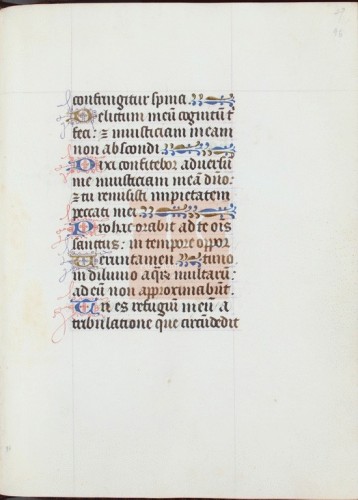 configitur spina
Delictum meū cognitū t
feci: ⁊ iniusticiam meam
non abscondi
Dixi confitebor aduersū
me iniusticiam meā dño:
⁊ tu remisisti impietatem
peccati mei
Pro hac orabit ad te ois
sanctus: in tempore oppor
Uerumtamen tuno
in diluuio aqȝ multarū:
ad eū non approximabūt.
Tu es refugiū meū a
tribulatione que circūdedit